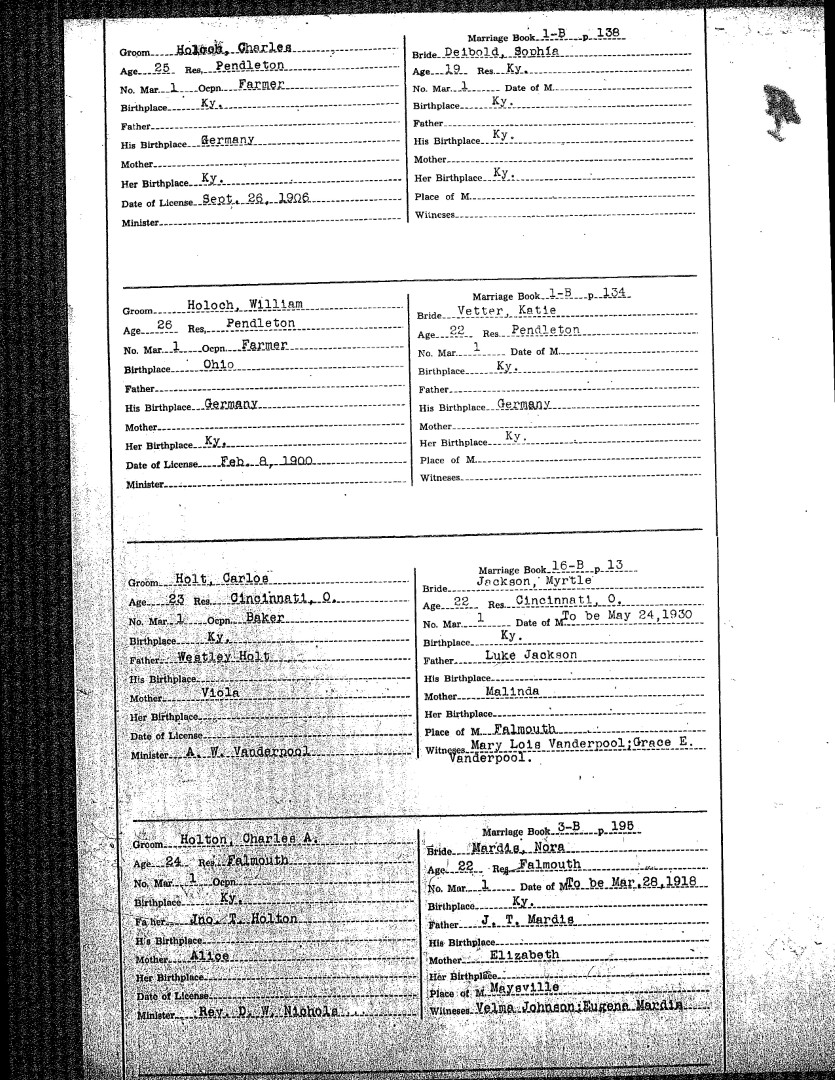 Groom Holoch, Charles
Age 25 Res. Pendleton
No. Mar. 1 Ocpn. Farmer
Birthplace Ky.
Father
His Birthplace Germany
Mother
Her Birthplace Ky.
Date of License Sept. 26, 1906
Minister
Marriage Book 1-B p. 138
Bride Deibold, Sophia
Age 19 Res. Ky.
No. Mar. 1 Date of M.
Birthplace Ky.
Father
His Birthplace Ky.
Mother
Her Birthplace Ky.
Place of M.
Witnesses
Groom Holoch, William
Age 26 Res. Pendleton
No. Mar. 1 Ocpn. Farmer
Birthplace Ohio
Father
His Birthplace Germany
Mother
Her Birthplace Ky.
Date of License Feb. 8, 1900
Minister
Marriage Book 1-B p. 134
Bride Vetter, Katie
Age 22 Res. Pendleton
No. Mar. 1 Date of M.
Birthplace Ky.
Father
His Birthplace Germany
Mother
Her Birthplace Ky.
Place of M.
Witneses
Groom Holt, Carlos
Age 23 Res. Cincinnati, O.
No. Mar. 1 Ocpn. Baker
Birthplace Ky.
Father Westley Holt
His Birthplace
Mother Viola
Her Birthplace
Date of License
Minister A. W. Vanderpool
Marriage Book 16-B p. 13
Bride Jackson, Myrtle
Age 22 Res. Cincinnati, O.
No. Mar. 1 Date of M. To be May 24,1930
Birthplace Ky.
Father Luke Jackson
His Birthplace
Mother Malinda
Her Birthplace
Place of M. Falmouth
Witneses Mary Lois Vanderpool;Grace E.
Vanderpool.
Groom Holton, Charles A.
Age 24 Res. Falmouth
No. Mar. 1 Ocpn.
Birthplace Ky.
Father Jno. T. Holton
His Birthplace
Mother Alice
Her Birthplace
Date of License
Minister Rev. D. W. Nichols
Marriage Book 3-B p. 195
Bride Mardis, Nora
Age 22 Res. Falmouth
No. Mar. 1 Date of M. To be Mar.28,1918
Birthplace Ky.
Father J. T. Mardis
His Birthplace
Mother Elizabeth
Her Birthplace
Place of M. Maysville
Witneses Velma Johnson;Eugene Mardis